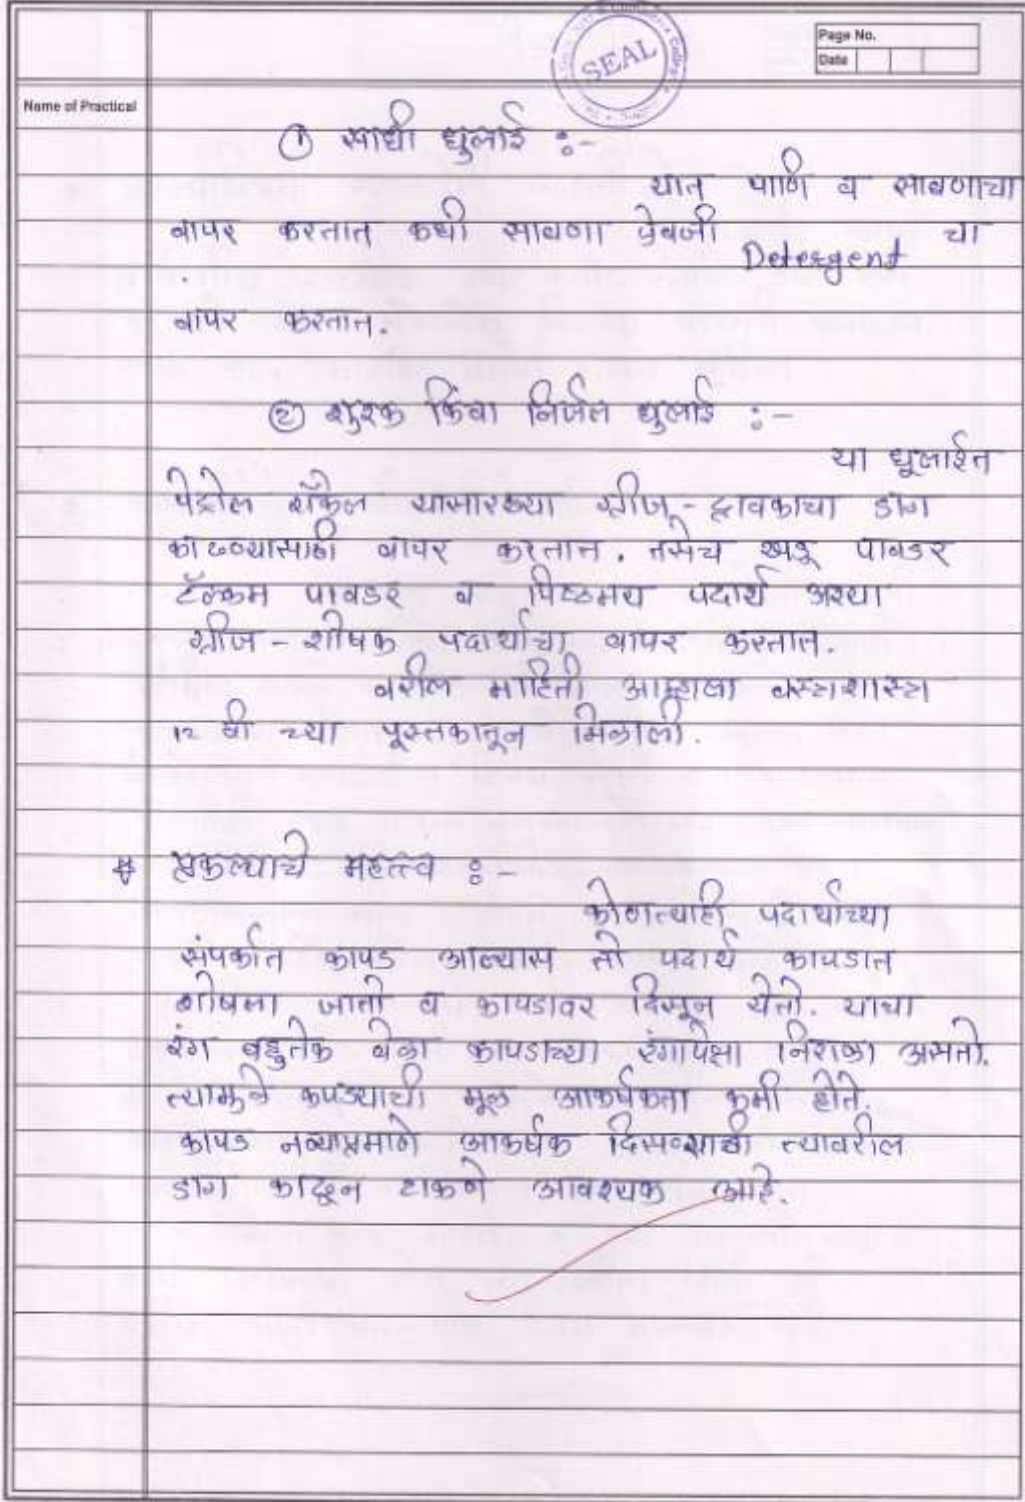 SEAL
Page No.
Date
Name of Practical
① साधी धुलाई :-
यात पाणि व साबणाचा
वापर करतात कधी साबणा ऐवजी Detergent चा
वापर करतात.
② शुष्क किंवा निर्जल धुलाई :-
या धूलाईत
पेट्रोल रॉकेल यासारख्या ग्रीज - द्रावकाचा डाग
काढण्यासाठी वापर करतात. तसेच खडू पावडर
टॅल्कम पावडर व पिष्ठमय पदार्थ अश्या
ग्रीज - शोषक पदार्थाचा वापर करतात.
वरील माहिती आम्हाला वस्त्रशास्त्र
१२ वी च्या पूस्तकातून मिळाली.
* प्रकल्पाचे महत्त्व :-
कोणत्याही पदार्थाच्या
संपर्कात कापड आल्यास तो पदार्थ कापडात
शोषला जातो व कापडावर दिसून येतो. याचा
रंग बहुतेक वेळा कापडाच्या रंगापेक्षा निराळा असतो.
त्यामुळे कपड्याची मूळ आकर्षकता कमी होते.
कापड नव्याप्रमाणे आकर्षक दिसण्याठी त्यावरील
डाग काढून टाकणे आवश्यक आहे.